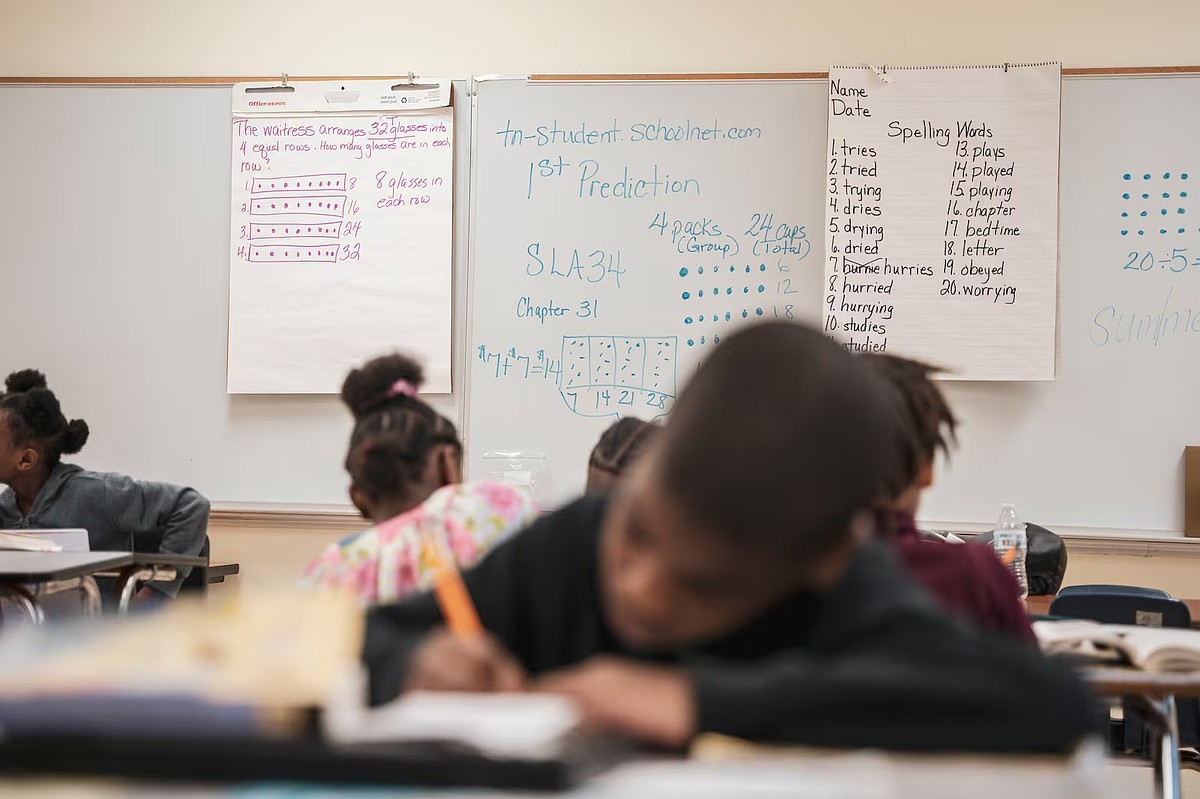 Office DEPOT
The waitress arranges 32 glasses into
4 equal rows. How many glasses are in each
row?
1. 8
2. 16
3. 24
4. 32
8 glasses in
each row
tn-student.schoolnet.com
1st Prediction
4 packs 24 cups
(Group) (Total)
6
12
18
SLA34
Chapter 31
$7+$7=$14
7 14 21 28
Name
Date
Spelling Words
1. tries
2. tried
3. trying
4. dries
5. drying
6. dried
7. hurries
8. hurried
9. hurrying
10. studies
studied
13. plays
14. played
15. playing
16. chapter
17. bedtime
18. letter
19. obeyed
20. worrying
20÷5=
Summe